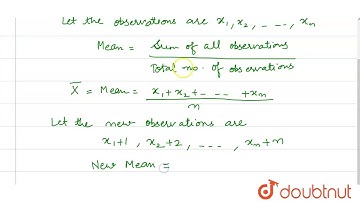 Let the observations are x₁, x₂, - - --, xₙ
Mean = Sum of all observations
Total no. of observations
X̄ = Mean = x₁+x₂+- --- +xₙ
n
Let the new observations are
x₁+1 , x₂+2 , - - -- , xₙ+n
New Mean =
doubtnut